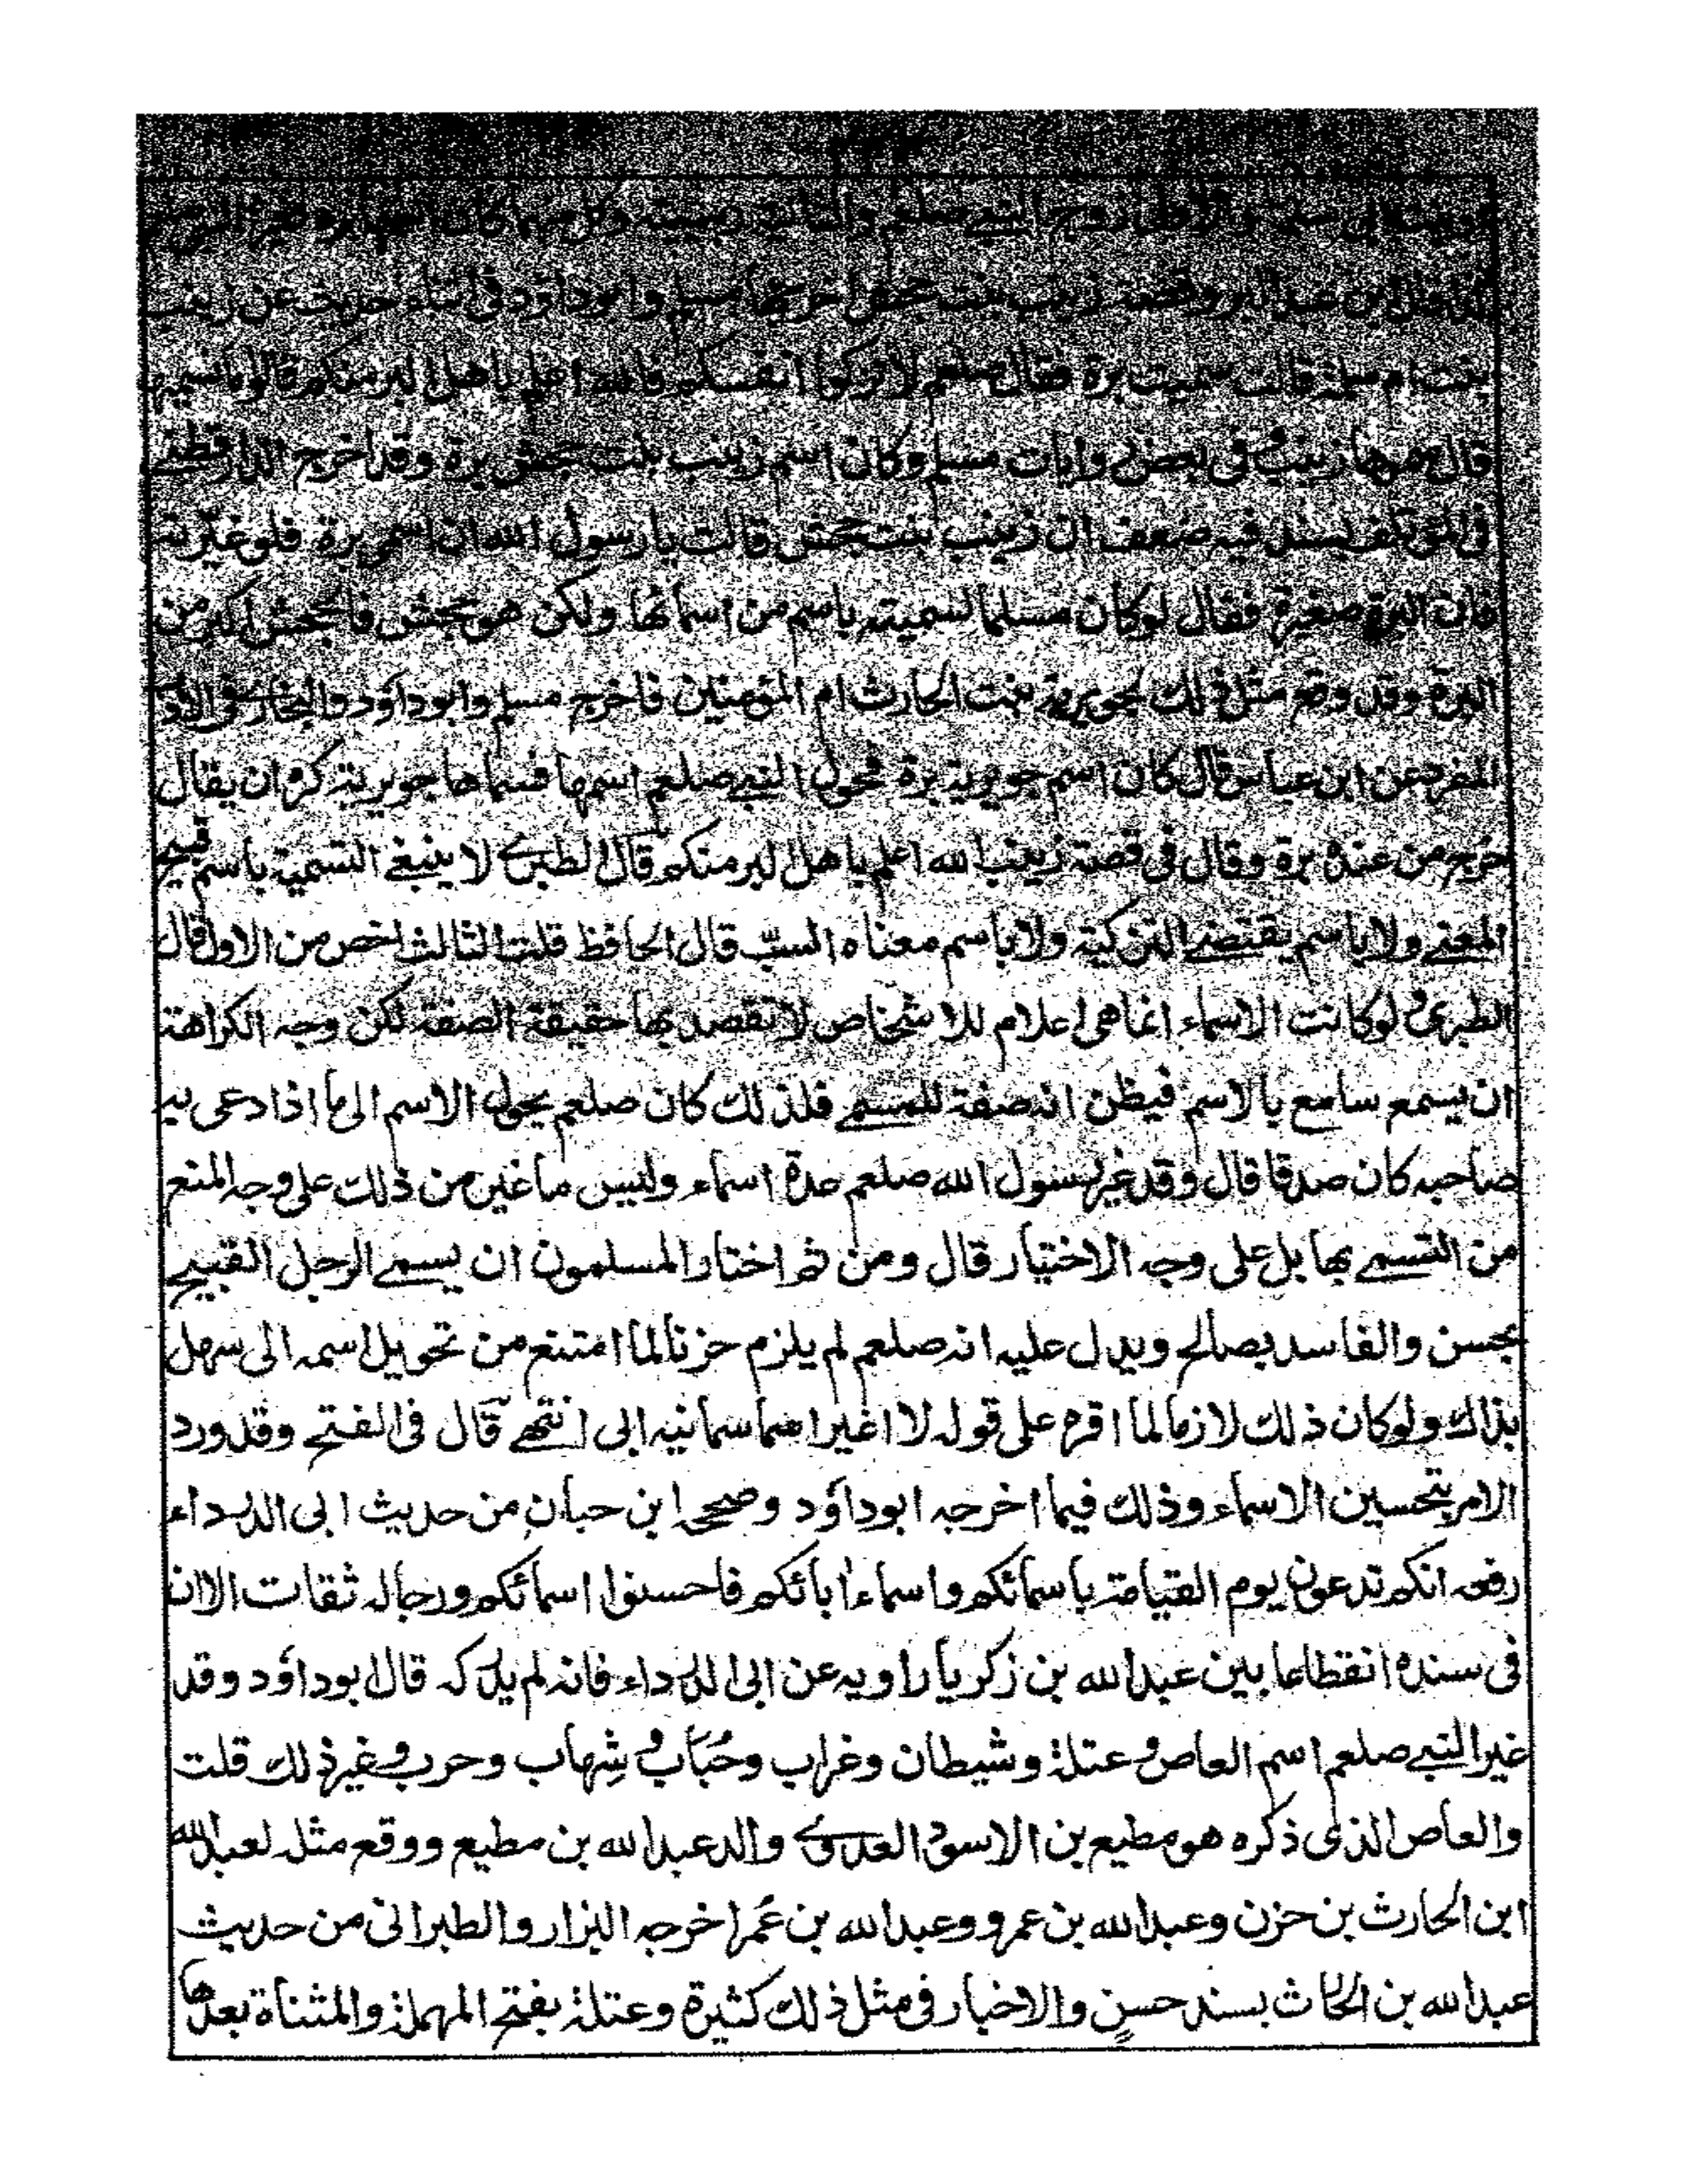 سلمة والاولى زوج النبي صلعم والثانية ربيبته وكل منهما كان اسمها برة
قال ابن عبد البر وقصة زينب بنت جحش اخرجها مسلم وابوداؤد فى اثناء حديث عن زينب
بنت ام سلمة قالت سميت برة فقال صلعم لا تزكوا انفسكم فالله اعلم باهل البر منكم قالوا ما نسميها
قال سموها زينب وفى بعض روايات مسلم وكان اسم زينب بنت جحش برة وقد اخرج الدارقطنى
فى المؤتلف بسند فيه ضعف ان زينب بنت جحش قالت يا رسول الله ان اسمى برة فلو غيرته
فان البرة صغيرة فقال لو كان مسلما لسميته باسم من اسمائها ولكن هو جحش فالجحش اكبر من
البرة وقد وقع مثل ذلك لجويرية بنت الحارث ام المؤمنين فاخرج مسلم وابوداؤد والبخارى فى الادب
المفرد عن ابن عباس قال كان اسم جويرية برة فحول النبي صلعم اسمها فسماها جويرية كره ان يقال
خرج من عنده برة وقال فى قصة زينب الله اعلم باهل البر منكم قال الطبرى لا ينبغى التسمية باسم قبيح
المعنى ولا باسم يقتضى التزكية ولا باسم معناه السبّ قال الحافظ قلت الثالث اخص من الاول قال
الطبرى ولو كانت الاسماء انما هى اعلام للاشخاص لا تقصد بها حقيقة الصفة لكن وجه الكراهة
ان يسمع سامع بالاسم فيظن انه صفة للمسمى فلذلك كان صلعم يحول الاسم الى ما اذا دعى به
صاحبه كان صدقا قال وقد غير رسول الله صلعم عدة اسماء وليس ما غير من ذلك على وجه المنع
من التسمى بها بل على وجه الاختيار قال ومن ثم اختار المسلمون ان يسمى الرجل القبيح
بحسن والفاسد بصالح ويدل عليه انه صلعم لم يلزم حزنا لما امتنع من تحويل اسمه الى سهل
بذلك ولو كان ذلك لازما لما اقره على قوله لا اغير اسما سمانيه ابى انتهى قال فى الفتح وقد ورد
الامر بتحسين الاسماء وذلك فيما اخرجه ابوداؤد وصححه ابن حبان من حديث ابى الدرداء
رفعه انكم تدعون يوم القيامة باسمائكم واسماء ابائكم فاحسنوا اسمائكم ورجاله ثقات الا ان
فى سنده انقطاعا بين عبد الله بن زكريا راويه عن ابى الدرداء فانه لم يدركه قال ابوداؤد وقد
غير النبي صلعم اسم العاص وعتلة وشيطان وغراب وحُبَاب وشِهاب وحرب وغير ذلك قلت
والعاص الذى ذكره هو مطيع بن الاسود العدوى والد عبد الله بن مطيع ووقع مثله لعبد الله
ابن الحارث بن حزن وعبد الله بن عمرو وعبد الله بن عُمر اخرجه البزار والطبرانى من حديث
عبد الله بن الحارث بسند حسن والاخبار فى مثل ذلك كثيرة وعتلة بفتح المهملة والمثناة بعدها